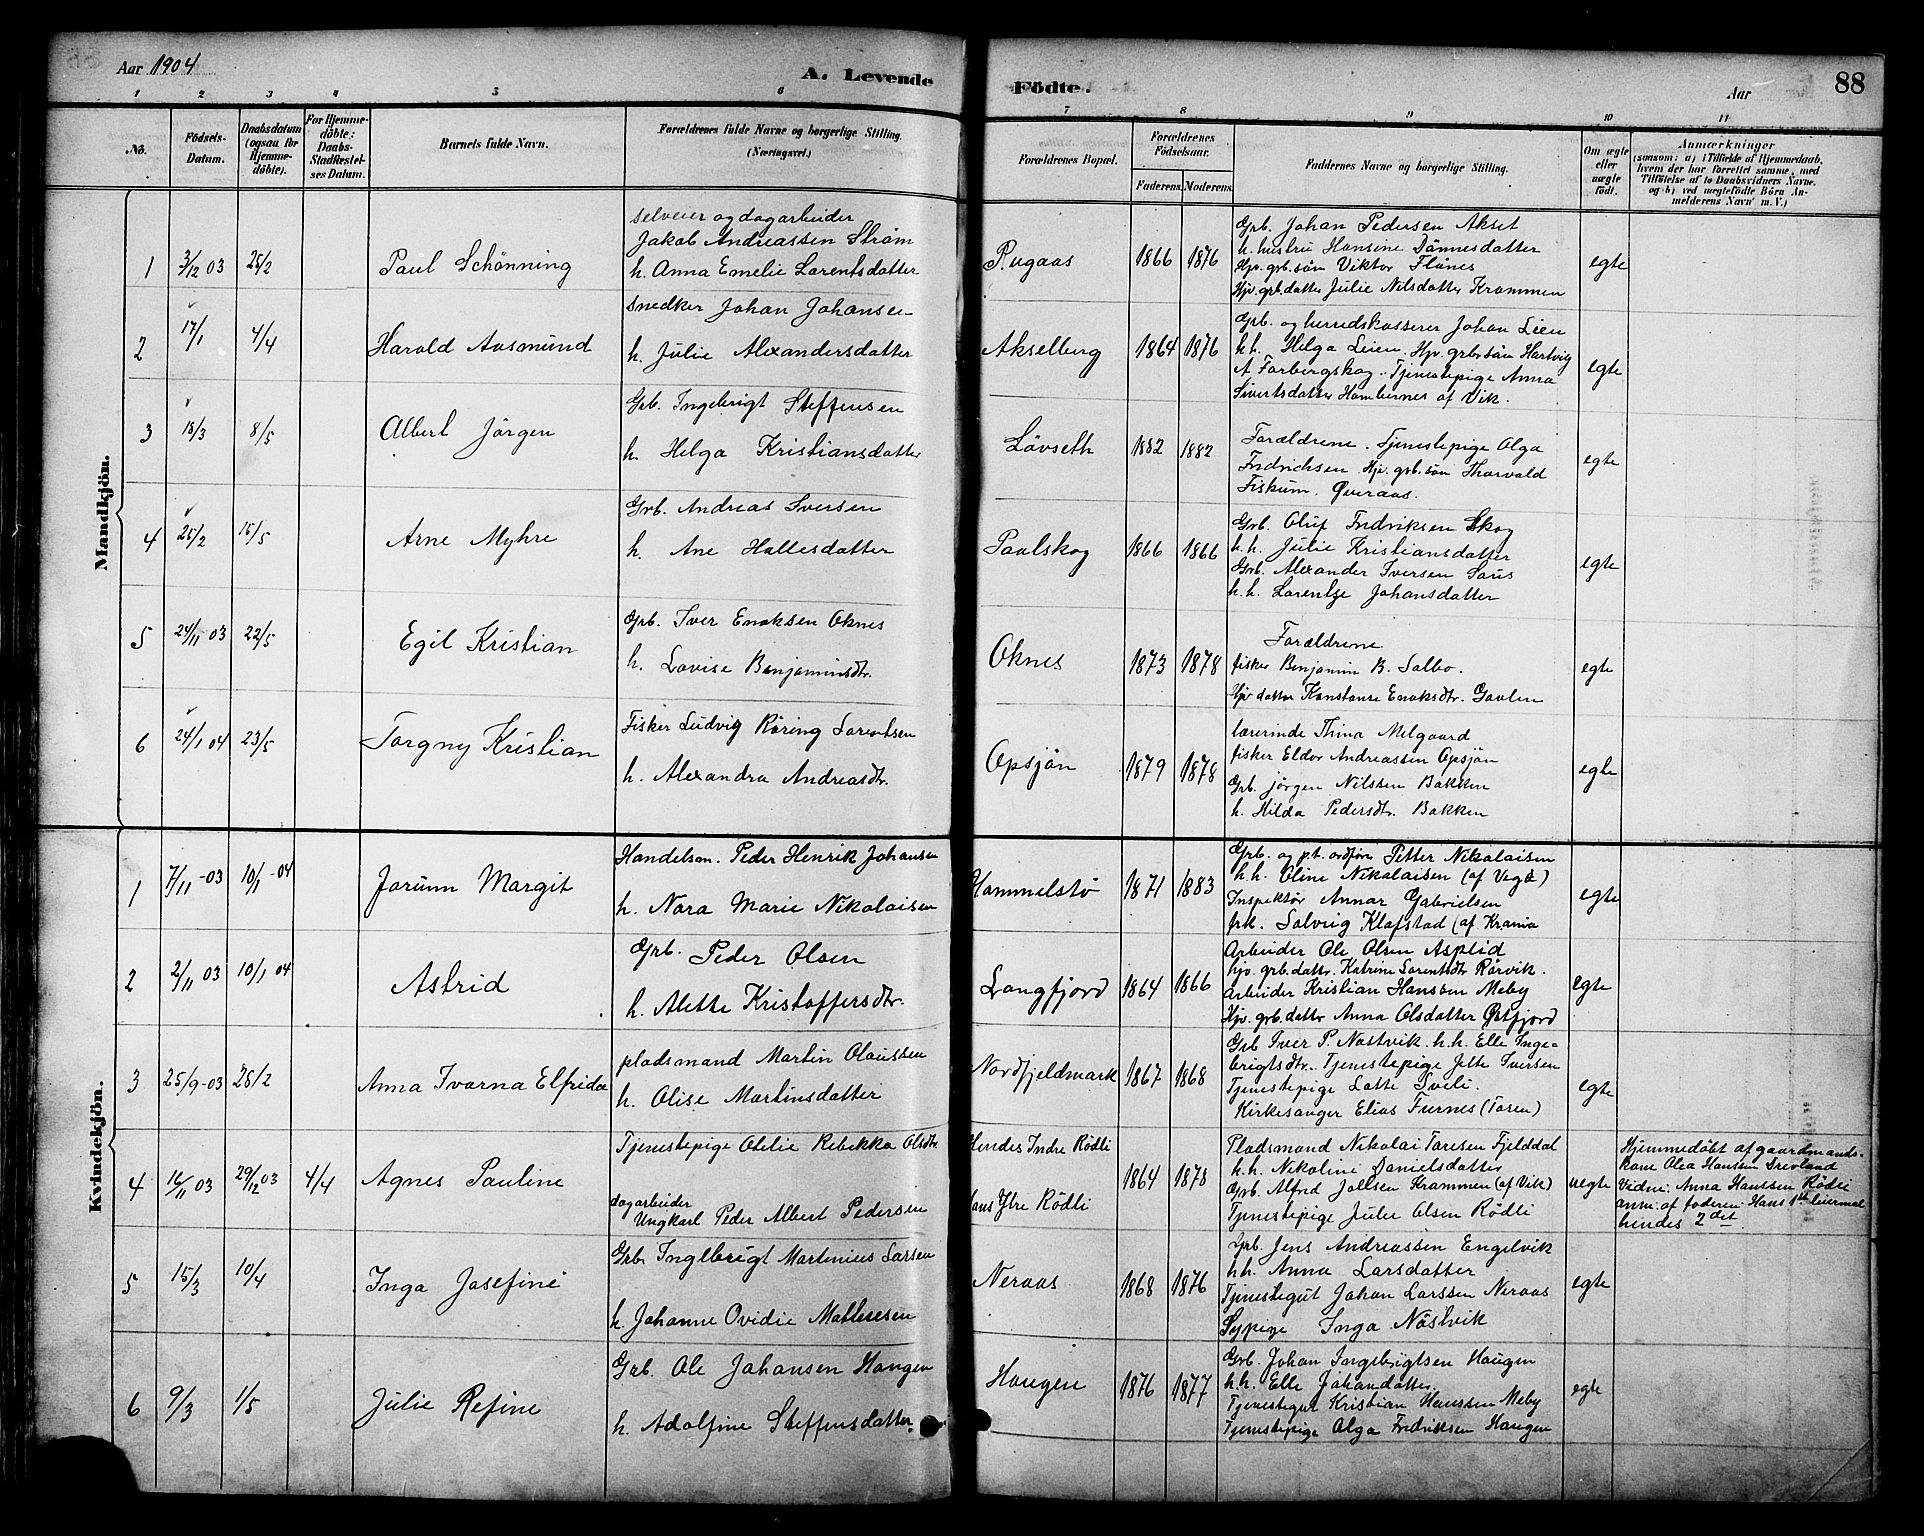 Aar 1904
A. Levende
Födte.
Aar
88
1 2 3 4 5 6 7 8 9 10 11
No.
Födsels-
Datum.
Daabsdatum
(ogsaa for
Hjemme-
döbte).
For Hjemme-
döbte:
Daabs-
Stadfæstel-
ses Datum.
Barnets fulde Navn.
Forældrenes fulde Navne og borgerlige Stilling.
(Næringsvei.)
Forældrenes Bopæl.
Forældrenes
Födselsaar.
Faderens. Moderens.
Faddernes Navne og borgerlige Stilling.
Om ægte
eller
uægte
födt.
Anmærkninger
(saasom: a) i Tilfælde af Hjemmedaab,
hvem der har forrettet samme, med
Tilföielse af to Daabsvidners Navne.
og b) ved uægtefödte Börn An-
melderens Navn m. V.)
Mandkjön.
1 3/12 03 25/2
Paul Schönning
selveier og dagarbeider
Jakob Andreassen Strøm
h. Anna Emelie Larentsdatter
Rugaas 1866 1876
Grb. Johan Pedersen Akset
h. hustru Hansine Dønnesdatter
Hjv. grb. søn Viktor Flånes
Hjv. grb. datter Julie Nilsdatter Krammen
egte
2 17/1 4/4
Harald Aasmund
Snedker Johan Johansen
h. Julie Alexandersdatter
Akselberg 1864 1876
Grb. og herredskasserer Johan Lien
h. h. Helga Leien. Hjv. grb. søn Hartvig
A Forbergskog. Tjenestepige Anna
Sivertsdatter Hambernes af Vik.
egte
3 18/3 8/5
Albert Jörgen
Grb. Ingebrigt Steffensen
h. Helga Kristiansdatter
Lövseth 1882 1882
Forældrene. Tjenestepige Olga
Fredrichsen Hjv. grb. søn Thorvald
Fiskum. Øveraas.
egte
4 25/2 15/5
Arne Myhre
Grb. Andreas Iversen
h. Ane Hallesdatter
Paalskog 1866 1866
Grb. Oluf Fredriksen Skog
h. h. Julie Kristiansdatter
Grb. Alexander Iversen Saus
h. h. Larentze Johansdatter
egte
5 24/11 03 22/5
Egil Kristian
Grb. Iver Enoksen Oknes
h. Lovise Benjaminsdtr.
Oknes 1873 1878
Forældrene
fisker Benjamin B. Salbo.
Hjv datter Konstanse Enoksdtr. Gaulen
egte
6 24/1 04 23/5
Torgny Kristian
Fisker Ludvig Röring Larentsen
h. Alexandra Andreasdtr.
Opsjön 1879 1878
lærerinde Thina Melgaard
fisker Eldor Andreassen Opsjön
Grb. Jörgen Nilssen Bakken
h. Hilda Pedersdtr. Bakken
egte
Kvindekjön.
1 7/11 -03 10/1 -04
Jorunn Margit
Handelsm. Peder Henrik Johansen
h. Nora Marie Nikolaisen
Hammelstø 1871 1883
Grb. og p.t. ordfører Petter Nikolaisen
h. h. Oline Nikolaisen (af Vega)
Inspektør Annar Gabrielsen
frk. Solveig Klafstad (af Krania
egte
2 2/11 03 10/1 04
Astrid
Grb. Peder Olsen
h. Alette Kristoffersdtr.
Langfjord 1864 1866
Arbeider Ole Olsen Asplid
hjv. grb. dattr. Katrine Larentsdtr Rørvik.
arbeider Kristian Hanssen Meby
Hjv. grb. datter Anna Olsdatter Østfjord
egte
3 25/9-03 28/2
Anna Ivarna Elfrida
pladsmand Martin Olaussen
h. Olise Martinsdatter
Nordfjeldmark 1867 1868
Grb Iver P. Nastvik. h. h. Elle Inge-
brigtsdtr. Tjenestepige Jette Iversen
Tjenestepige Lotte Sveli.
Kirkesanger Elias Furnes (Toren)
egte
4 16/11 03 29/12 03 4/4
Agnes Pauline
Tjenestepige Otelie Rebekka Olsdtr
dagarbeider
Ungkarl Peder Albert Pedersen
Hendes Indre Rödli
Hans Ytre Rödli
1864 1878
Pladsmand Nikolai Toresen Fjelddal
h. h. Nikoline Danielsdatter
Grb. Alfred Joelsen Krammen (af Vik)
Tjenestepige Julie Olsen Rödli
uegte
Hjemmedøbt af gaardmands-
kone Olea Hanssen Drevland
Vidne: Anna Hanssen Rödli
anm. af faderen. Hans 1ste leiermaal
hendes 2det.
5 15/3 10/4
Inga Josefine
Grb Ingebrigt Martinius Larsen
h. Johanne Ovidie Mathisesen
Neraas 1868 1876
Grb. Jens Andreassen Engelvik
h h. Anna Larsdatter
Tjenestegut Johan Larssen Neraas
Sypige Inga Nåstvik
egte
6 9/3 1/5
Julie Refine
Grb. Ole Johansen Haugen
h. Adolfine Steffensdatter.
Haugen 1876 1877
Grb. Johan Ingebrigtsen Haugen
h. h. Elle Johansdatter
Tjenestegut Kristian Hanssen Meby
Tjenestepige Olga Fredriksen Haugen
egte